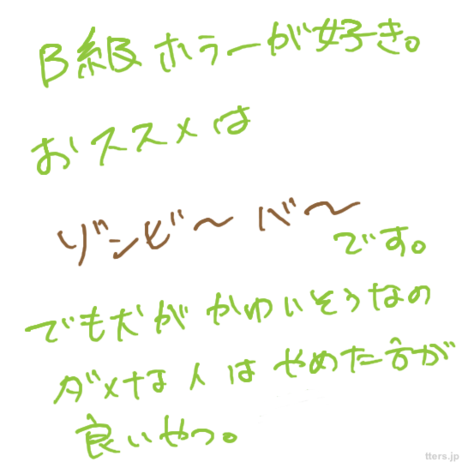 B級ホラーが好き。
おススメは
ゾンビ〜バ〜
です。
でも犬がかわいそうなの
ダメな人はやめた方が
良いやつ。
tters.jp